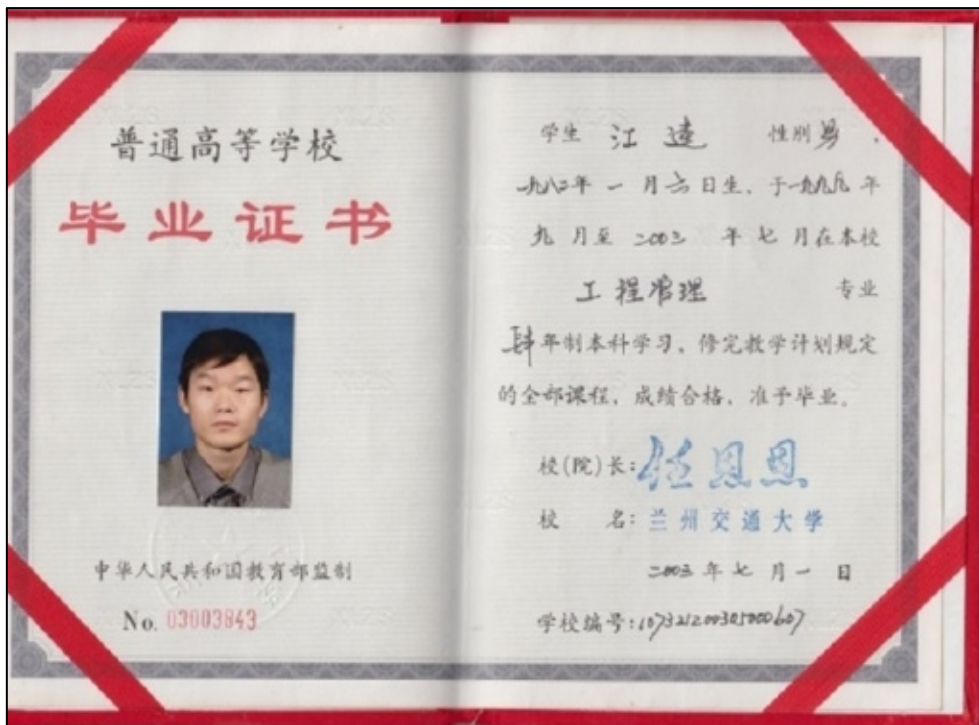 普通高等学校
毕业证书
中华人民共和国教育部监制
No. 03003843
学生 江达 性别男，
一九八二年一月六日生，于一九九九年
九月至二〇〇三年七月在本校
工程管理 专业
肆年制本科学习，修完教学计划规定
的全部课程，成绩合格，准予毕业。
校(院)长：任恩恩
校 名：兰州交通大学
二〇〇三年七月一日
学校编号：107321200305000607